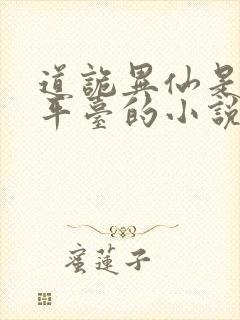 道詭異仙是
平臺的小說
蜜蓮子